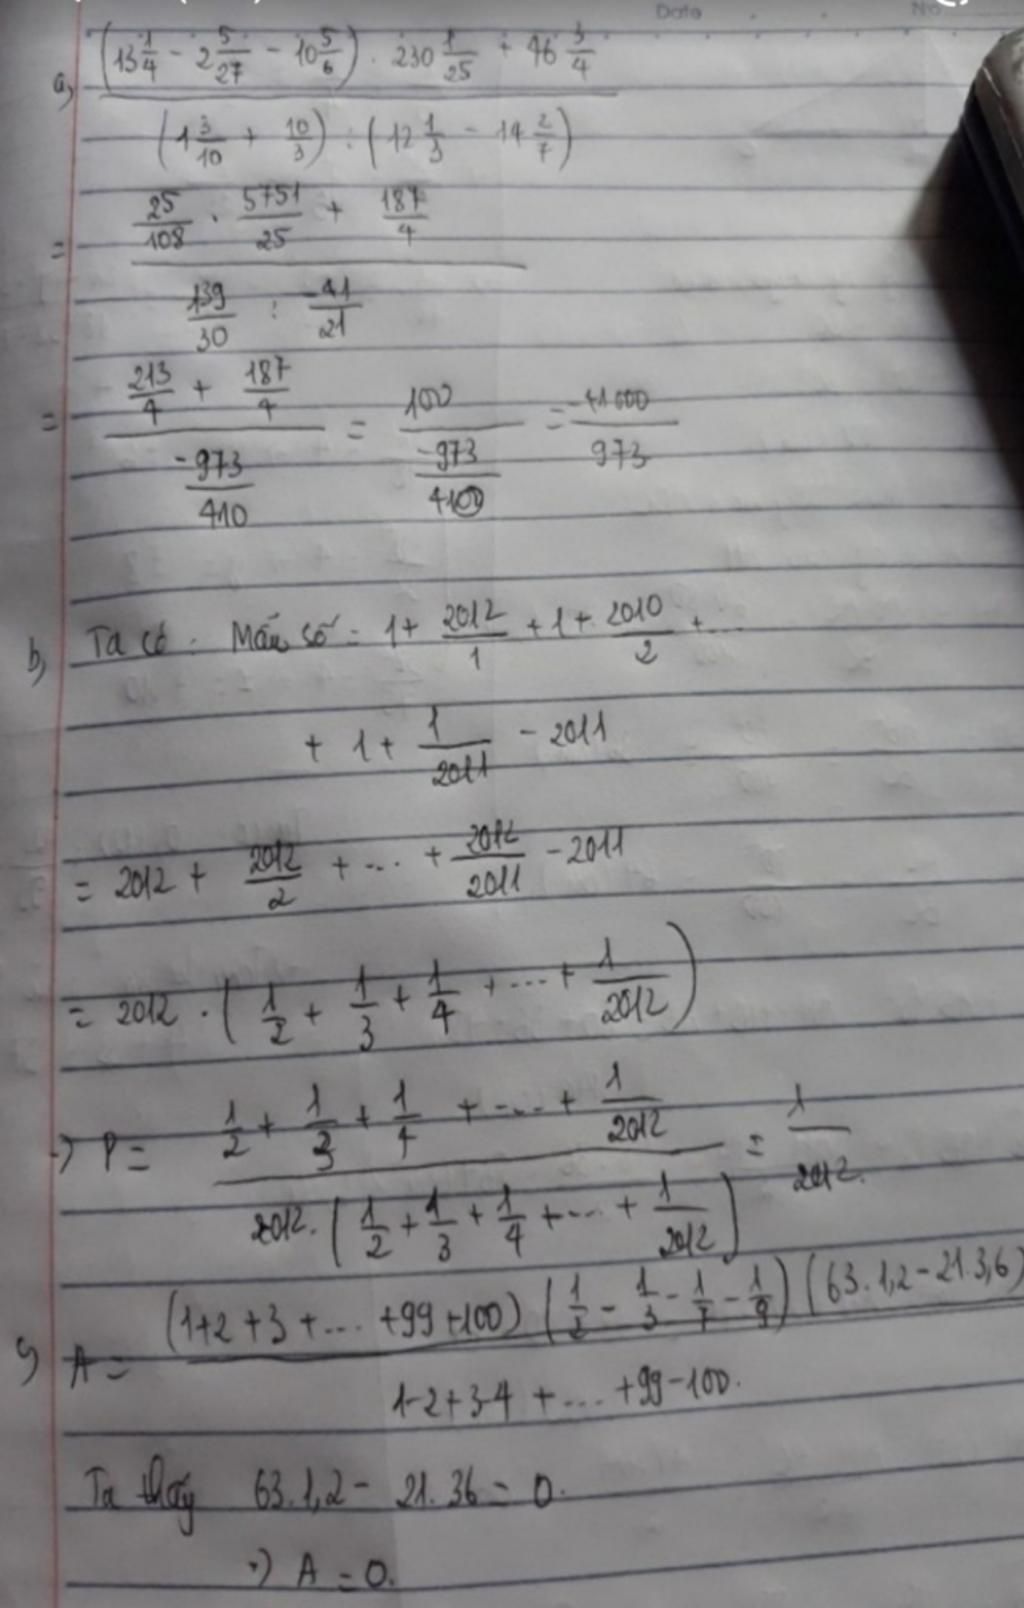 Date No
a, (13 1/4 - 2 5/27 - 10 5/6) . 230 1/25 + 46 3/4
(1 3/10 + 10/3) : (12 1/3 - 14 2/7)
= 25/108 . 5751/25 + 187/4
139/30 : -41/21
= 213/4 + 187/4 / -973/410 = 100 / -973/4100 = -41000/973
b, Ta có : Mẫu số = 1 + 2012/1 + 1 + 2010/2 + ...
+ 1 + 1/2011 - 2011
= 2012 + 2012/2 + ... + 2012/2011 - 2011
= 2012 . (1/2 + 1/3 + 1/4 + ... + 1/2012)
=) P = 1/2 + 1/3 + 1/4 + ... + 1/2012 / 2012. (1/2 + 1/3 + 1/4 + ... + 1/2012) = 1/2012.
c) A = (1+2+3+...+99+100) (1/2 - 1/3 - 1/7 - 1/9) (63.1,2 - 21.3,6)
1-2+3-4 + ... +99-100.
Ta thấy 63.1,2 - 21.36 = 0.
=) A = 0.